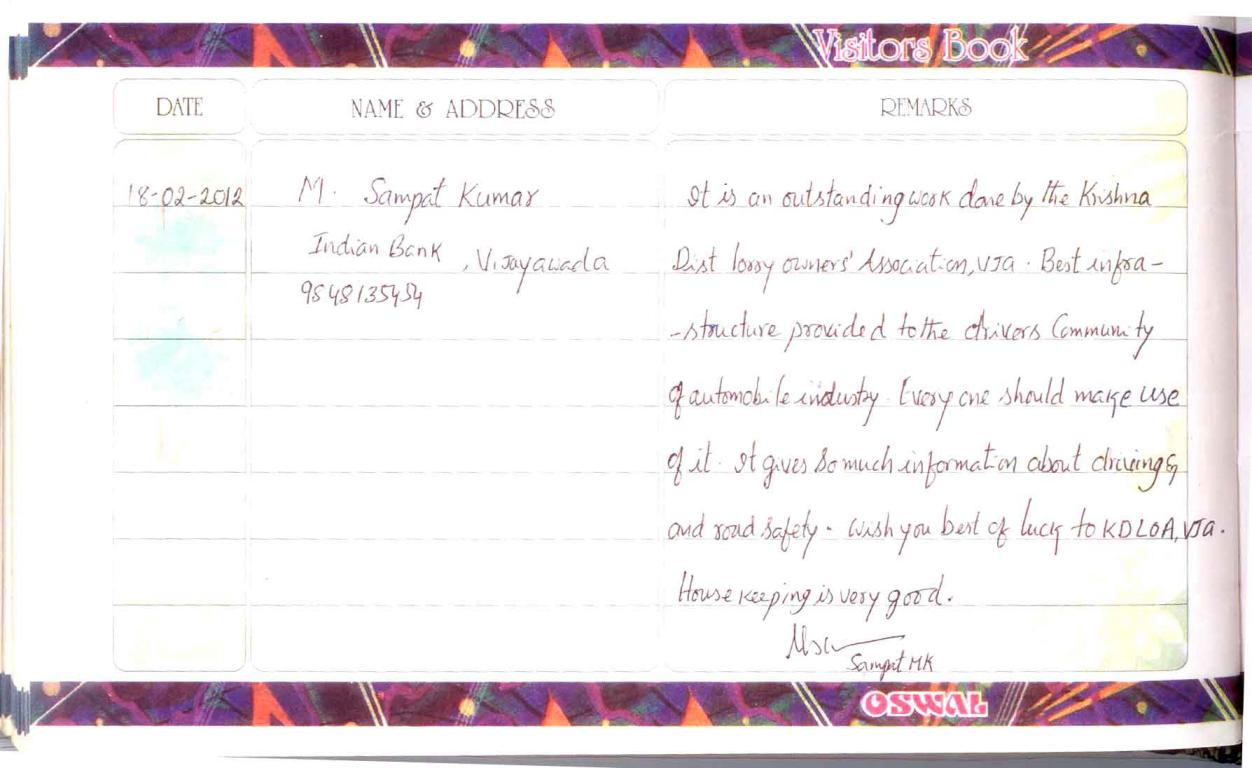 Visitors Book
DATE
NAME & ADDRESS
REMARKS
18-02-2012
M. Sampat Kumar
Indian Bank, Vijayawada
9848135454
It is an outstanding work done by the Krishna
Dist lorry owners' Association, VJA. Best infra-
-structure provided to the drivers Community
of automobile industry. Every one should make use
of it. It gives so much information about driving &
and road safety. Wish you best of luck to KDLOA, VJA.
House keeping is very good.
Sampat MK
OSWAL